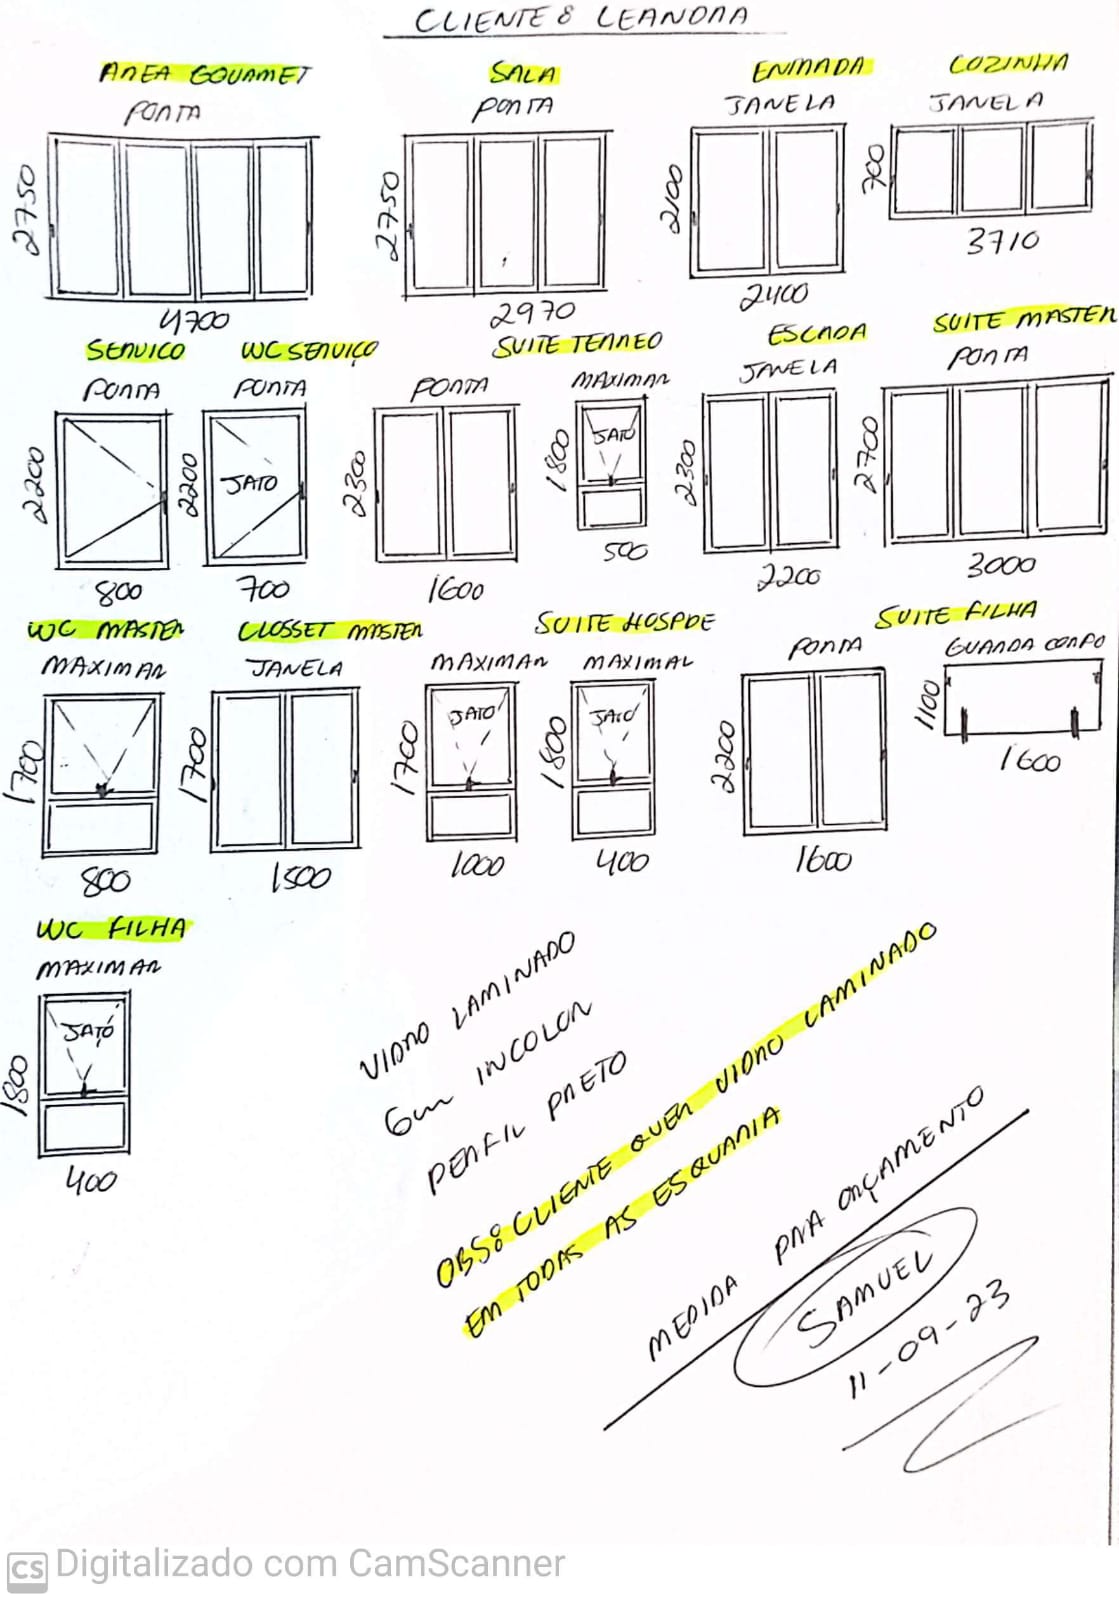 CLIENTE: LEANDRA
AREA GOURMET
PORTA
2750
4700
SALA
PORTA
2750
2970
ENTRADA
JANELA
2100
2400
COZINHA
JANELA
700
3710
SERVICO
PORTA
2200
800
WC SERVIÇO
PORTA
2200
JATO
700
SUITE TERREO
PORTA
2300
1600
MAXIMAR
1800
JATO
500
ESCADA
JANELA
2300
2200
SUITE MASTER
PORTA
2700
3000
WC MASTER
MAXIMAR
1700
800
CLOSSET MASTER
JANELA
1700
1500
SUITE HOSPDE
MAXIMAR
1700
JATO
1000
MAXIMAL
1800
JATO
400
SUITE FILHA
PORTA
2200
1600
GUARDA CORPO
1100
1600
WC FILHA
MAXIMAR
1800
JATO
400
VIDRO LAMINADO
6mm INCOLOR
PERFIL PRETO
OBS: CLIENTE QUER VIDRO LAMINADO
EM TODAS AS ESQUARIA
MEDIDA PARA ORÇAMENTO
SAMUEL
11-09-23
CS Digitalizado com CamScanner